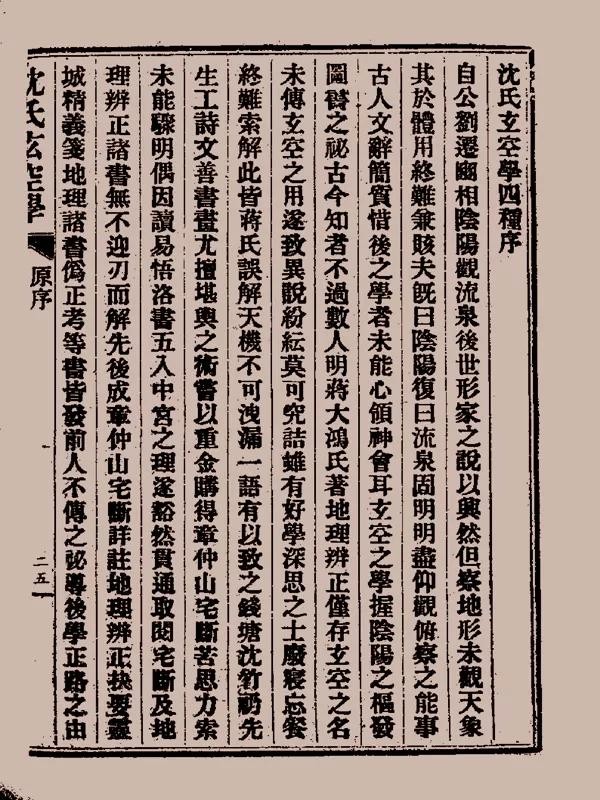 沈氏玄空學四種序
自公劉遷豳相陰陽觀流泉後世形家之說以興然但察地形未觀天象
其於體用終難兼賅夫旣曰陰陽復曰流泉固明明盡仰觀俯察之能事
古人文辭簡質惜後之學者未能心領神會耳玄空之學握陰陽之樞發
圖書之祕古今知者不過數人明蔣大鴻氏著地理辨正僅存玄空之名
未傳玄空之用遂致異說紛紜莫可究詰雖有好學深思之士廢寢忘餐
終難索解此皆蔣氏誤解天機不可洩漏一語有以致之錢塘沈竹礽先
生工詩文善書畫尤擅堪輿之術嘗以重金購得章仲山宅斷苦思力索
未能驟明偶因讀易悟洛書五入中宮之理遂豁然貫通取閱宅斷及地
理辨正諸書無不迎刃而解先後成章仲山宅斷詳註地理辨正抉要靈
城精義箋地理諸書僞正考等書皆發前人不傳之祕導後學正路之由
沈氏玄空學
原序
二五